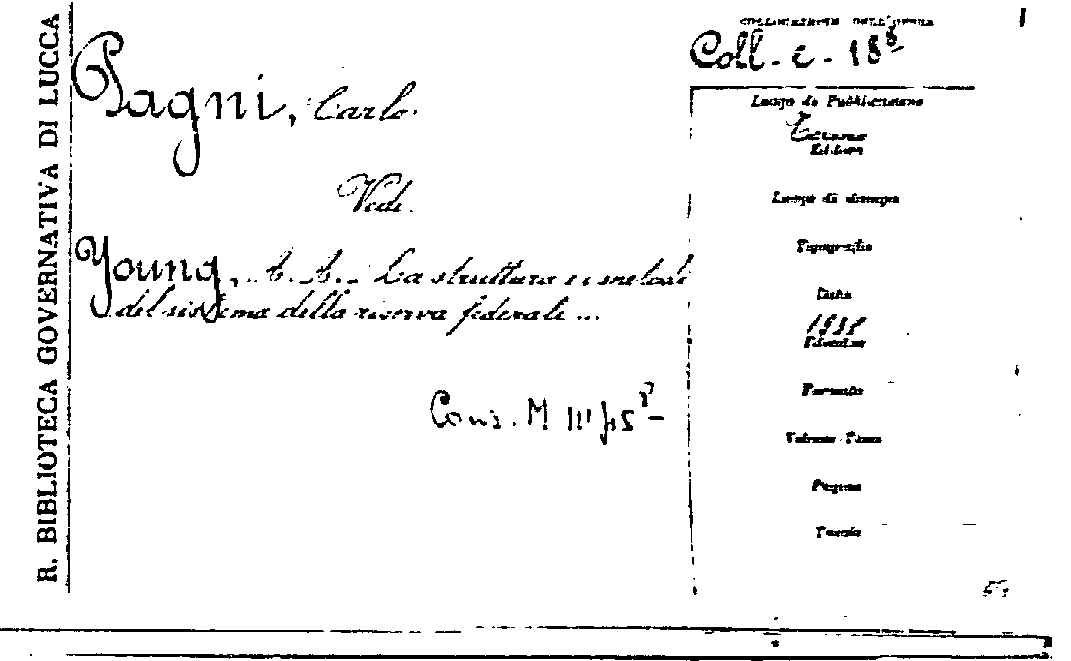 R. BIBLIOTECA GOVERNATIVA DI LUCCA
COLLOCAZIONE DELL'OPERA
Coll. c. 18⁸
Pagni, Carlo.
Vedi.
Young, A. A. - La struttura e i metodi
del sistema della riserva federale ...
Cons. M III 15
Luogo di Pubblicazione
Editore
Luogo di stampa
Tipografia
Data
Edizione
Formato
Volume Tomo
Pagine
Tavole